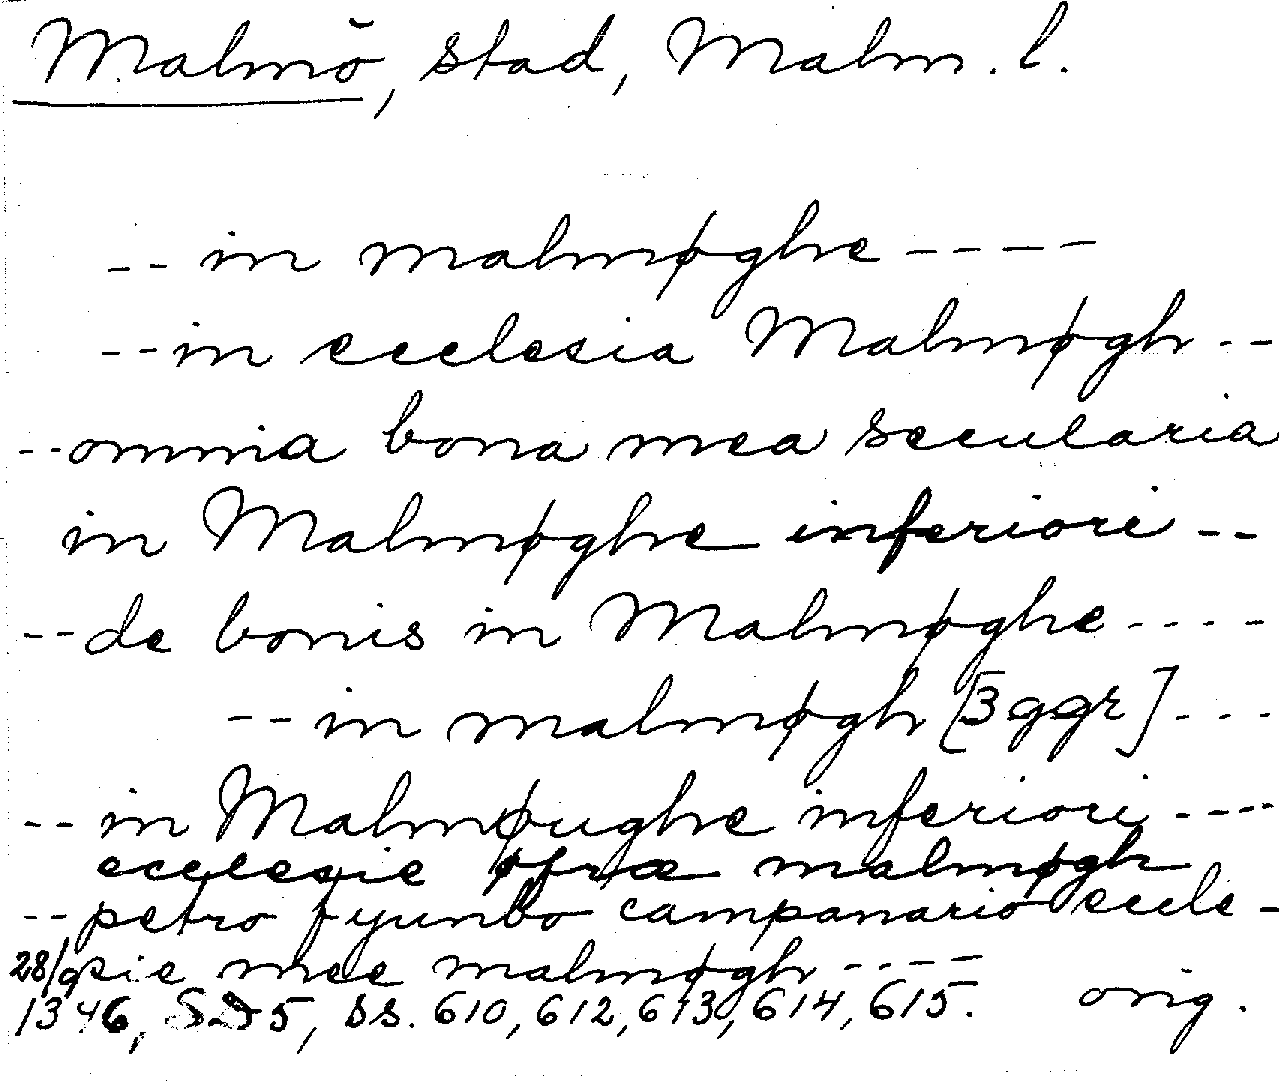 Malmö, stad, Malm. l.
-- in malmøghe ----
-- in ecclesia Malmøgh --
-- omnia bona mea secularia
in Malmøghe inferiori --
-- de bonis in Malmøghe ----
-- in malmøgh [3 ggr] ---
-- in Malmøughe inferiori ----
ecclesie øfræ malmøgh
-- petro fyunbo campanario eccle-
sie mee malmøgh ----
28/9 1346, SD 5, ss. 610, 612, 613, 614, 615. orig.